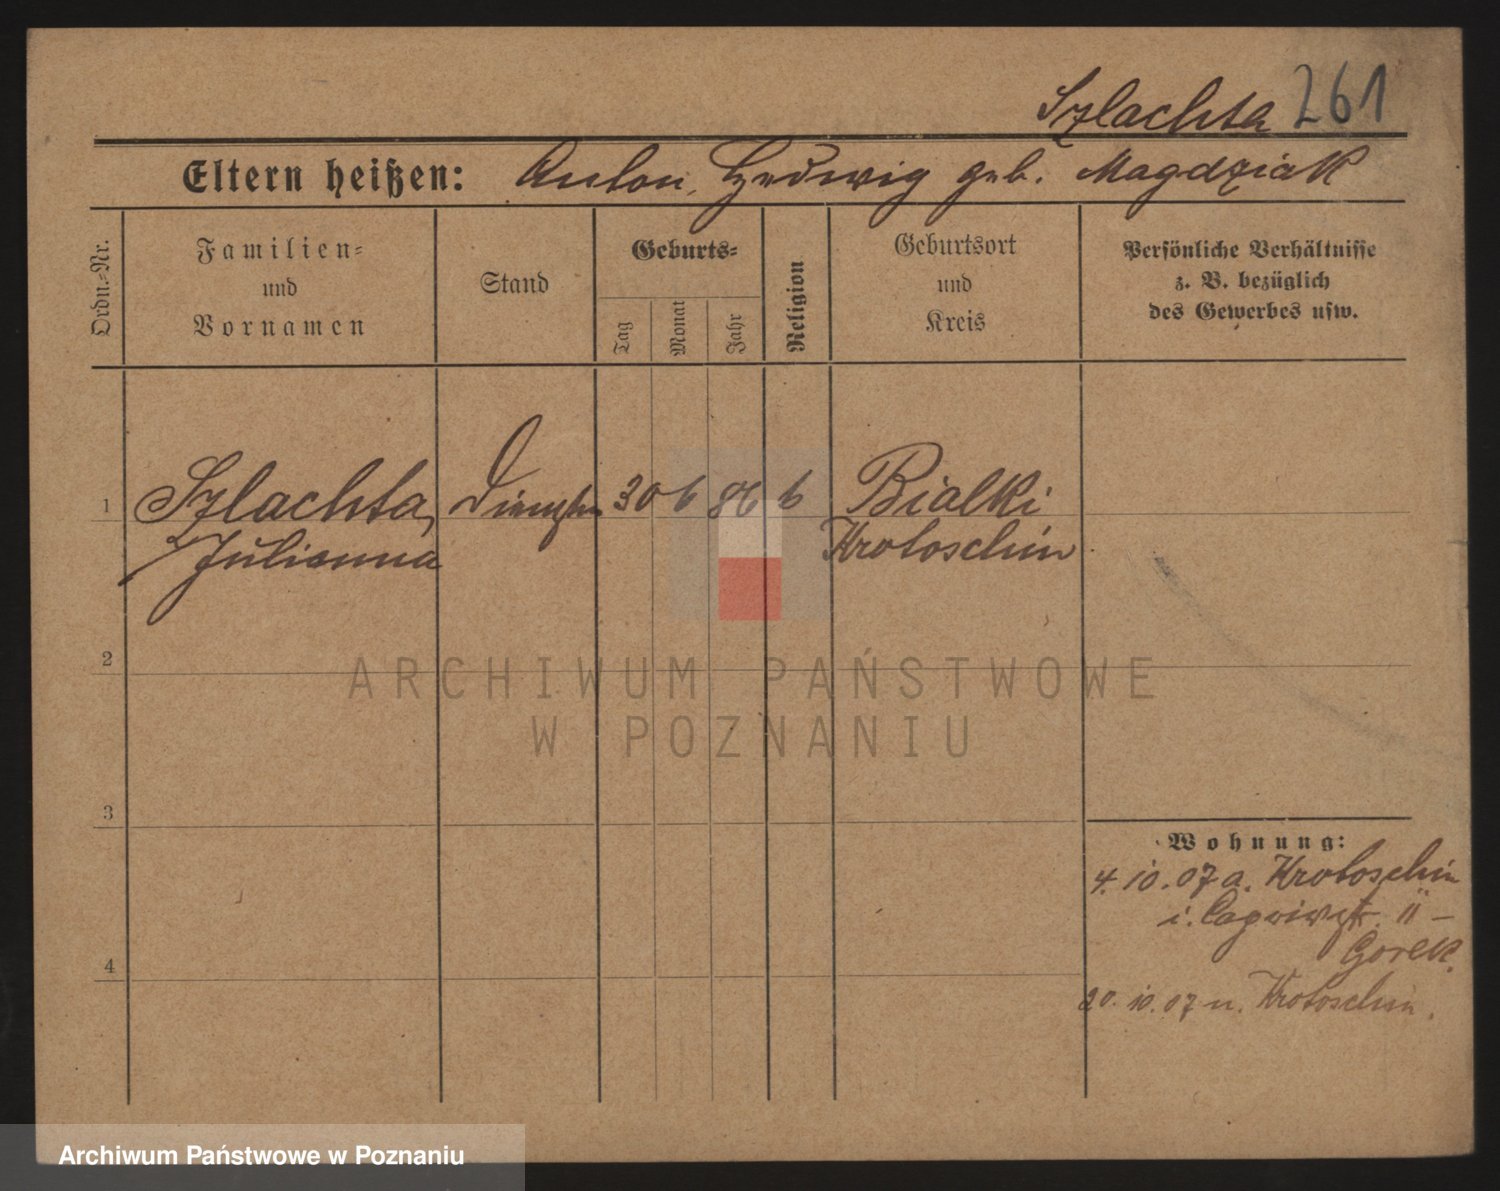 Szlachta 261
Eltern heißen: Anton, Hedwig geb. Magdziak
Ordn.-Nr.
Familien-
und
Vornamen
Stand
Geburts-
Tag
Monat
Jahr
Religion
Geburtsort
und
Kreis
Persönliche Verhältnisse
z. B. bezüglich
des Gewerbes usw.
1 Szlachta, 30 6 86 Bialki
Julianna Krotoschin
2
ARCHIWUM PAŃSTWOWE
W POZNANIU
3
Wohnung:
4. 10. 07 a. Krotoschin
i. 11 –
Gorek.
20. 10. 07 n. Krotoschin.
4
Archiwum Państwowe w Poznaniu